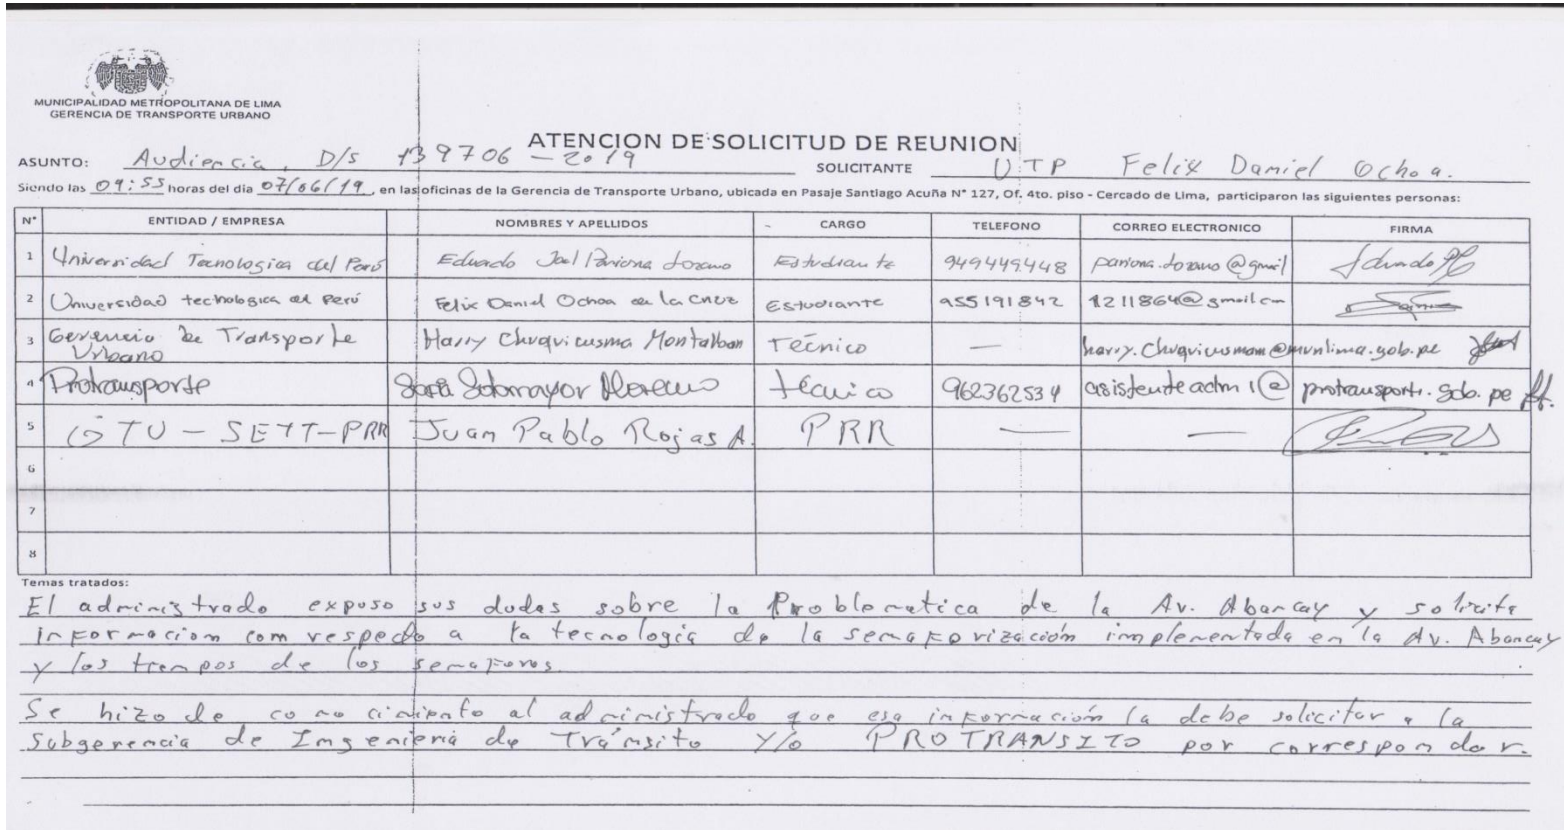 MUNICIPALIDAD METROPOLITANA DE LIMA
GERENCIA DE TRANSPORTE URBANO
ATENCION DE SOLICITUD DE REUNION
ASUNTO: Audiencia, D/S 139706 - 2019 SOLICITANTE UTP Felix Daniel Ochoa.
Siendo las 09:55 horas del día 07/06/19, en las oficinas de la Gerencia de Transporte Urbano, ubicada en Pasaje Santiago Acuña N° 127, Of. 4to. piso - Cercado de Lima, participaron las siguientes personas:
N° ENTIDAD / EMPRESA NOMBRES Y APELLIDOS CARGO TELEFONO CORREO ELECTRONICO FIRMA
1 Universidad Tecnologica del Perú Eduardo Joel Pariona Lozano Estudiante 949449448 pariona.lozano@gmail
2 Universidad technologica del Perú Felix Daniel Ochoa de la Cruz Estudiante 955191842 1211864@gmail.com
3 Gerencia de Transporte Urbano Harry Chuquicusma Montalban Técnico — harry.chuquicusmam@munlima.gob.pe
4 Protransporte Sara Sotomayor Moreno técnico 962362534 asistenteadm1@protransporte.gob.pe
5 GTU - SETT-PRR Juan Pablo Rojas A. PRR — —
6
7
8
Temas tratados:
El administrado expuso sus dudas sobre la Problematica de la Av. Abancay y solicita
informacion com respecto a la tecnología de la semaforización implementada en la Av. Abancay
y los tiempos de los semaforos.
Se hizo de conocimiento al administrado que esa información la debe solicitar a la
Subgerencia de Imgenieria de Tránsito y/o PROTRANSITO por corresponder.